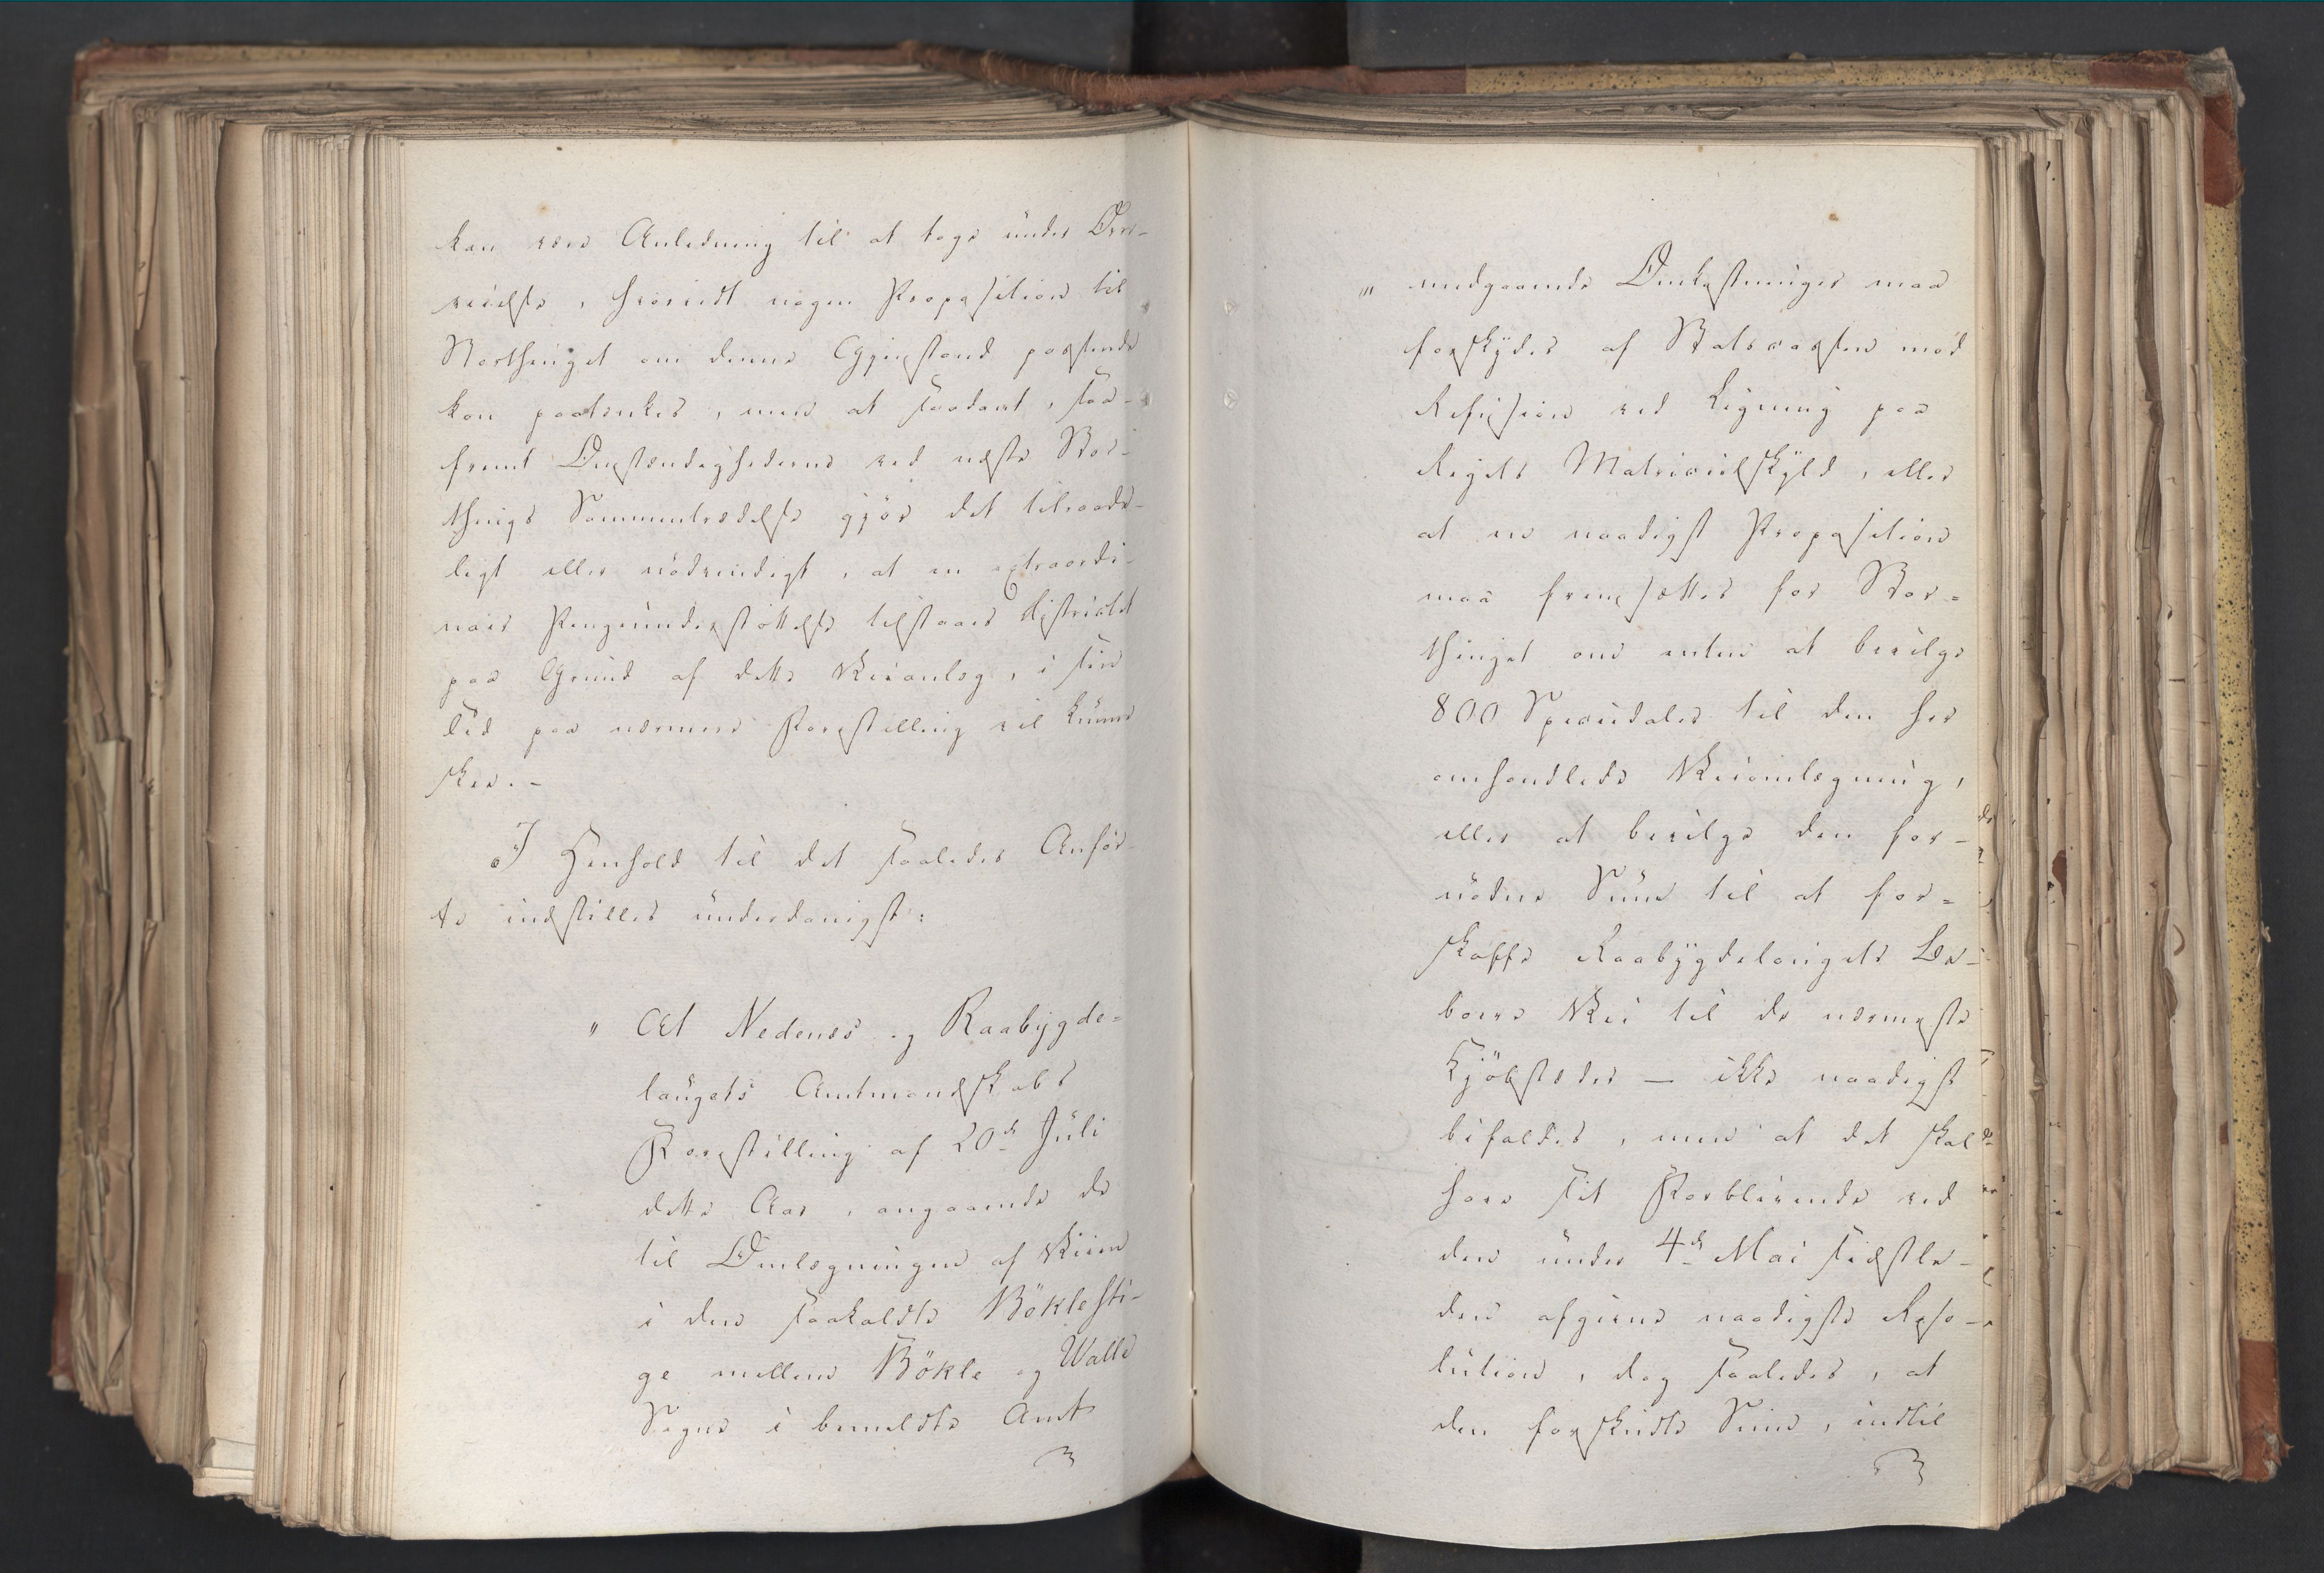 kan være Anledning til at tage under Over-
veielse, hvorvidt nogen Proposition til
Storthinget om denne Gjenstand passende
kan paatænkes, men at saadant, saa-
fremt Omstændighederne ved næste Stor-
things Sammentrædelse gjør det tilraade-
ligt eller nødvendigt, at en extraordi-
nair Pengeunderstøttelse tilstaaes Districtet
paa Grund af dette Veianlæg, i sin
Tid paa nærmere Forestilling vil kunne
skee. -
I Henhold til det saaledes Anfør-
te indstilles underdanigst:
" At Nedenæs og Raabygde-
laugets Amtmandskabs
Forestilling af 20de Juli
dette Aar, angaaende de
til Omlægningen af Veien
i den saakaldte Böklesti-
ge mellem Bökle og Walle
Sogne i bemeldte Amt
"' medgaaende Omkostninger maa
forskydes af Statscassen mod
Refusion ved Ligning paa
Rigets Matriculskyld, eller
at en naadigst Proposition
maa fremsættes for Stor=
thinget om enten at bevilge
800 Speciedaler til den her
omhandlede Veiomlægning,
eller at bevilge den for-
nødne Sum til at for=
skaffe Raabygdelaugets Be-
boere Vei til de nærmeste
Kjöbstæder — ikke naadigst
bifaldes, men at det skal
have sit Forblivende ved
den under 4de Mai sidstle-
den afgivne naadigste Reso-
lution, dog saaledes, at
den forskudte Sum, indtil